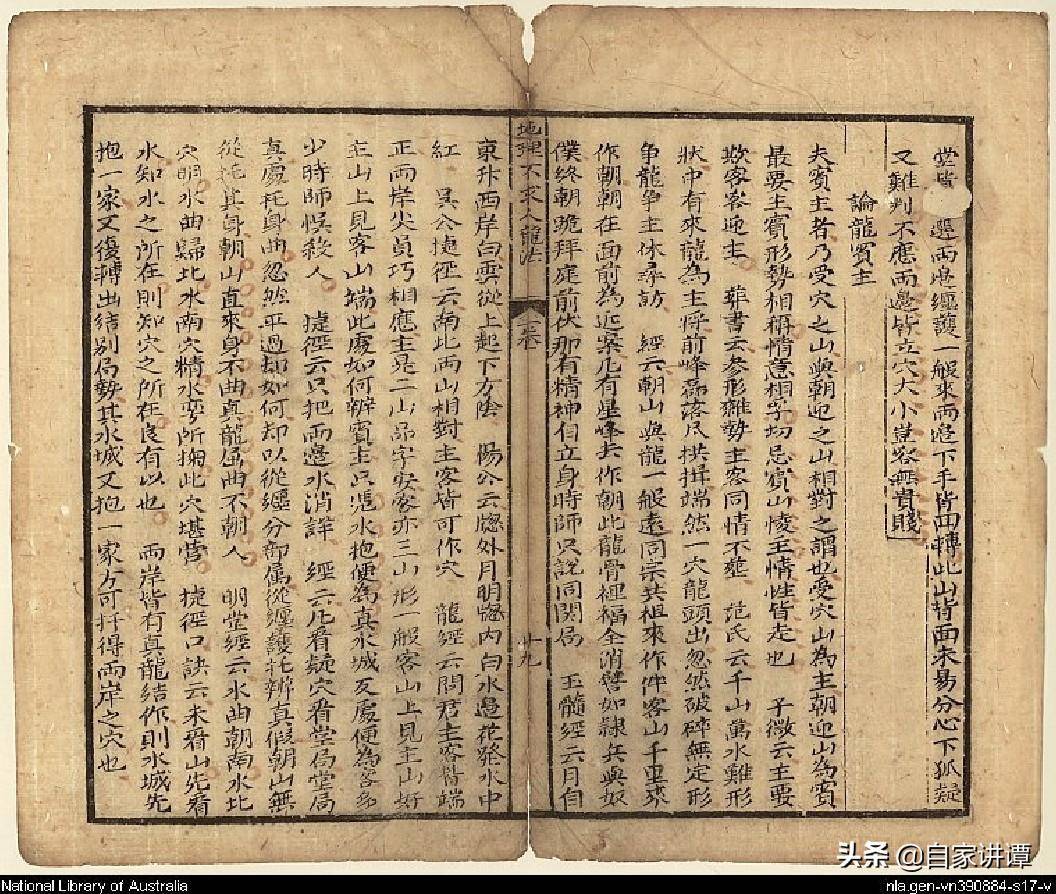 堂皆選兩邉纒護一般來兩邉下手皆回轉此山背面未易分心下狐疑
又難判不應兩邉皆立穴大小豈容無貴賤
論龍賓主
夫賓主者乃受穴之山與朝迎之山相對之謂也受穴山為主朝迎山為賔
最要主賓形勢相稱情意相孚切忌賓山悽主情性皆走也 子微云主要
欺客客迎主 葬書云參形雜勢主客同情不塟 范氏云千山萬水難形
狀中有來龍為主將前峰磊落只拱揖端然一穴龍頭出忽然破碎無定形
争龍争主休尋訪 經云朝山與龍一般遠同宗共祖來作伴客山千里來
作朝朝在面前為近案凡有星峰去作朝此龍骨裡福全消譬如隷兵與奴
僕終朝跪拜庭前伏那有精神自立身時師只說同関局 玉髓經云月自
地理不求人龍法
卷
十九
東升西岸白雲從上起下方陰 楊公云牕外月明牕內白水邉花発水中
紅 吴公捷徑云南北两山相對主客皆可作穴 龍經云問君主客皆端
正兩岸尖員巧相應主是二山品字安客亦三山形一般客山上見主山好
主山上見客山端此處如何辨賓主只㴲水抱便為真水城反處便為客多
少時師悞殺人 捷徑云只把兩邉水消詳 經云凡看疑穴看堂局堂局
真處托身曲忽然平過却如何却以從纒分部属從纒護托辨真假朝山無
從托其身朝山直來身不曲真龍屈曲不朝人 明堂經云水曲朝南水北
穴明水曲歸北水南穴精水要所掬此穴堪營 捷徑口訣云未看山先看
水知水之所在則知穴之所在良有以也 兩岸皆有真龍結作則水城先
抱一家又復轉出結别局勢其水城又抱一家方可扦得兩岸之穴也
头条 @自家讲谭
National Library of Australia
nla.gen-vn390884-s17-v